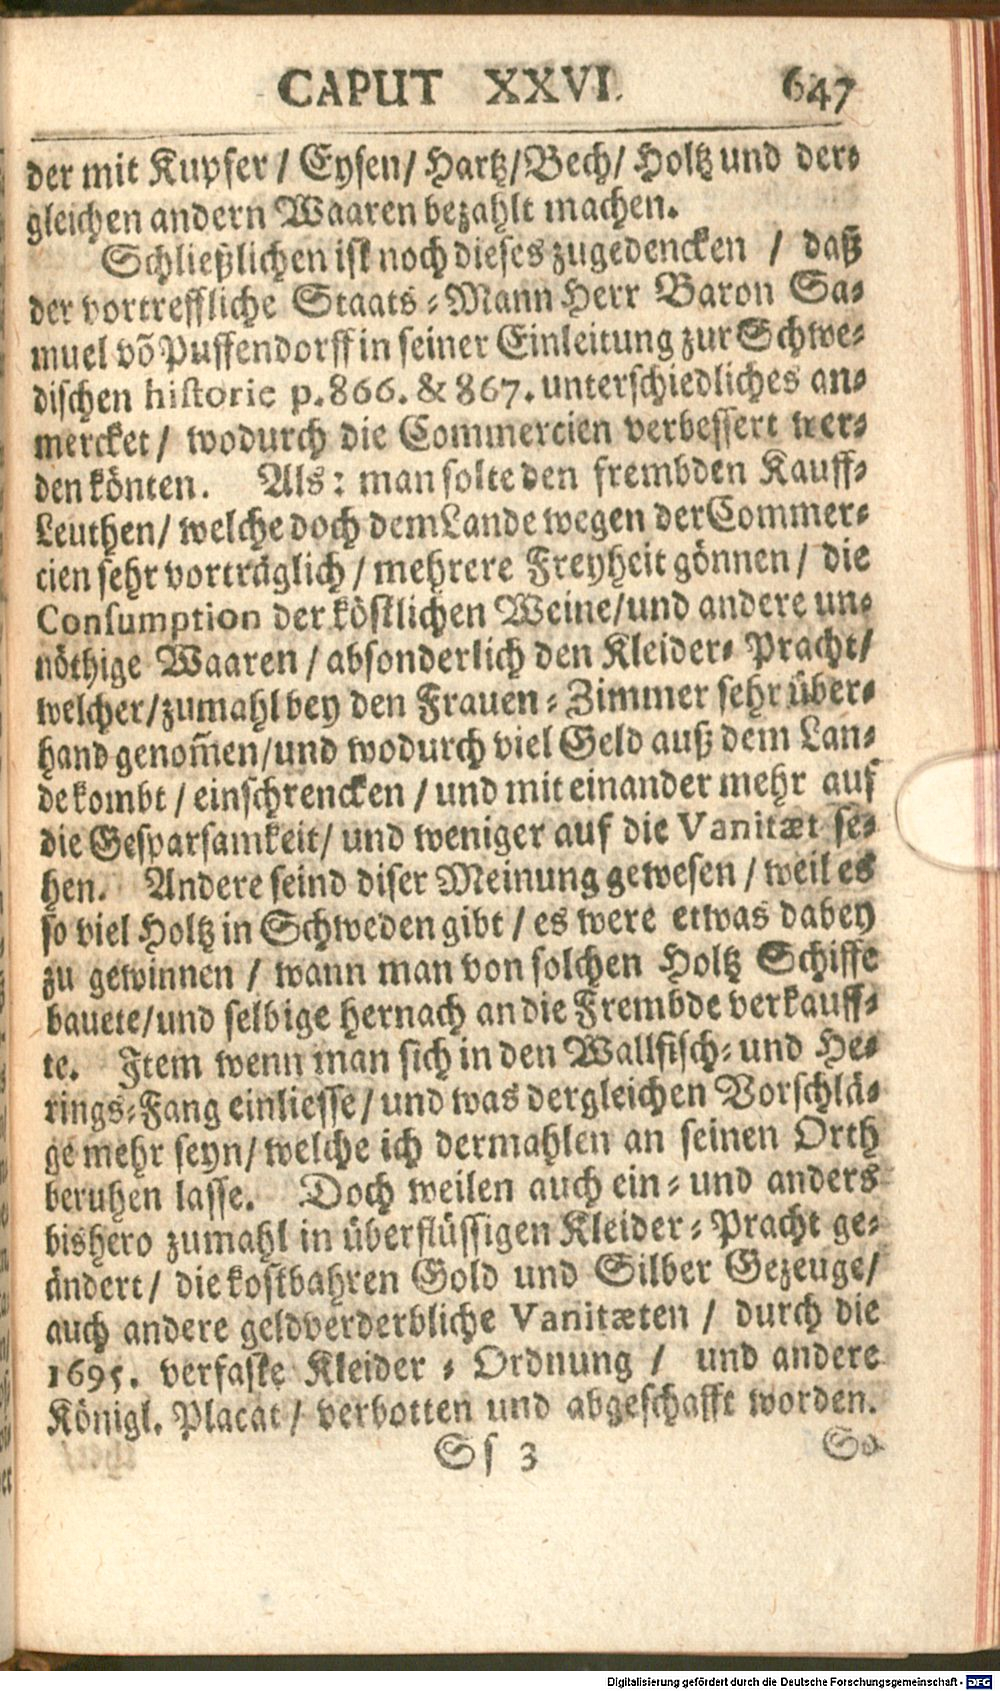 CAPUT XXVI. 647
der mit Kupfer / Eysen / Hartz / Bech / Holtz und der-
gleichen andern Waaren bezahlt machen.
Schließlichen ist noch dieses zugedencken / daß
der vortreffliche Staats-Mann Herr Baron Sa-
muel võ Puffendorff in seiner Einleitung zur Schwe-
dischen historie p. 866. & 867. unterschiedliches an-
mercket / wodurch die Commercien verbessert wer-
den könten. Als: man solte den frembden Kauff-
Leuthen / welche doch dem Lande wegen der Commer-
cien sehr vorträglich / mehrere Freyheit gönnen / die
Consumption der köstlichen Weine / und andere un-
nöthige Waaren / absonderlich den Kleider-Pracht /
welcher / zumahl bey den Frauen-Zimmer sehr über-
hand genom̃en / und wodurch viel Geld auß dem Lan-
de kombt / einschrencken / und mit einander mehr auf
die Gesparsamkeit / und weniger auf die Vanitæt se-
hen. Andere seind diser Meinung gewesen / weil es
so viel Holtz in Schweden gibt / es were etwas dabey
zu gewinnen / wann man von solchen Holtz Schiffe
bauete / und selbige hernach an die Frembde verkauff-
te. Item wenn man sich in den Wallfisch- und He-
rings-Fang einliesse / und was dergleichen Vorschlä-
ge mehr seyn / welche ich dermahlen an seinen Orth
beruhen lasse. Doch weilen auch ein- und anders
bishero zumahl in überflüssigen Kleider-Pracht ge-
ändert / die kostbahren Gold und Silber Gezeuge /
auch andere geldverderbliche Vanitæten / durch die
1695. verfaste Kleider-Ordnung / und andere
Königl. Placat / verbotten und abgeschafft worden.
Ss 3 So
Digitalisierung gefördert durch die Deutsche Forschungsgemeinschaft - DFG